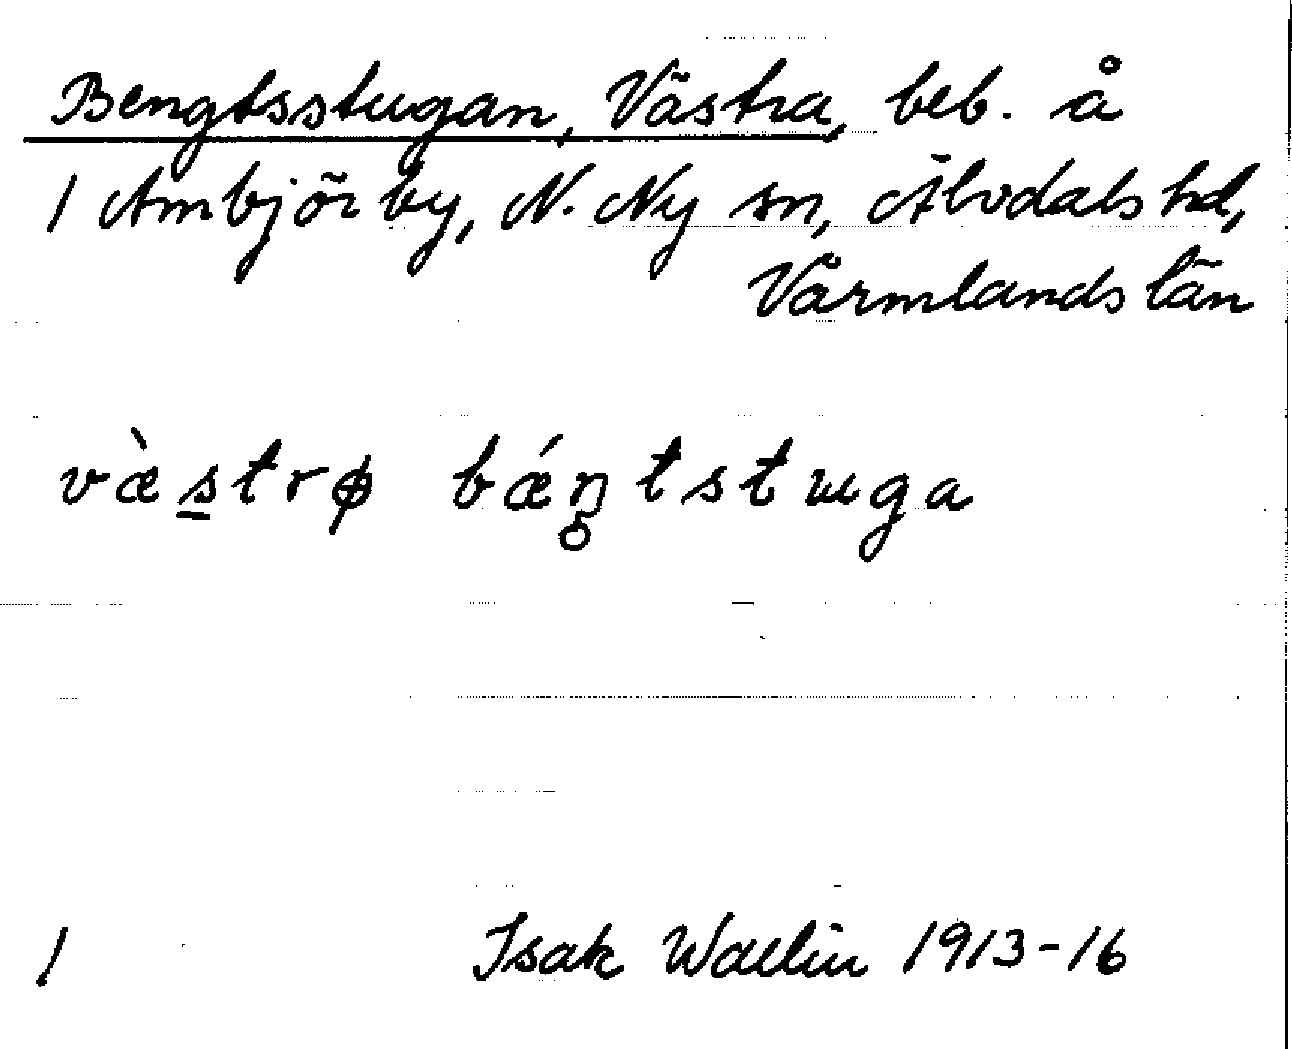 Bengtsstugan, Västra, beb. å
1 Ambjörby, N. Ny sn, Älvdals hd,
Värmlands län
væ̀s̲trø bǽŋ̊tstɯga
1 Isak Wallin 1913-16